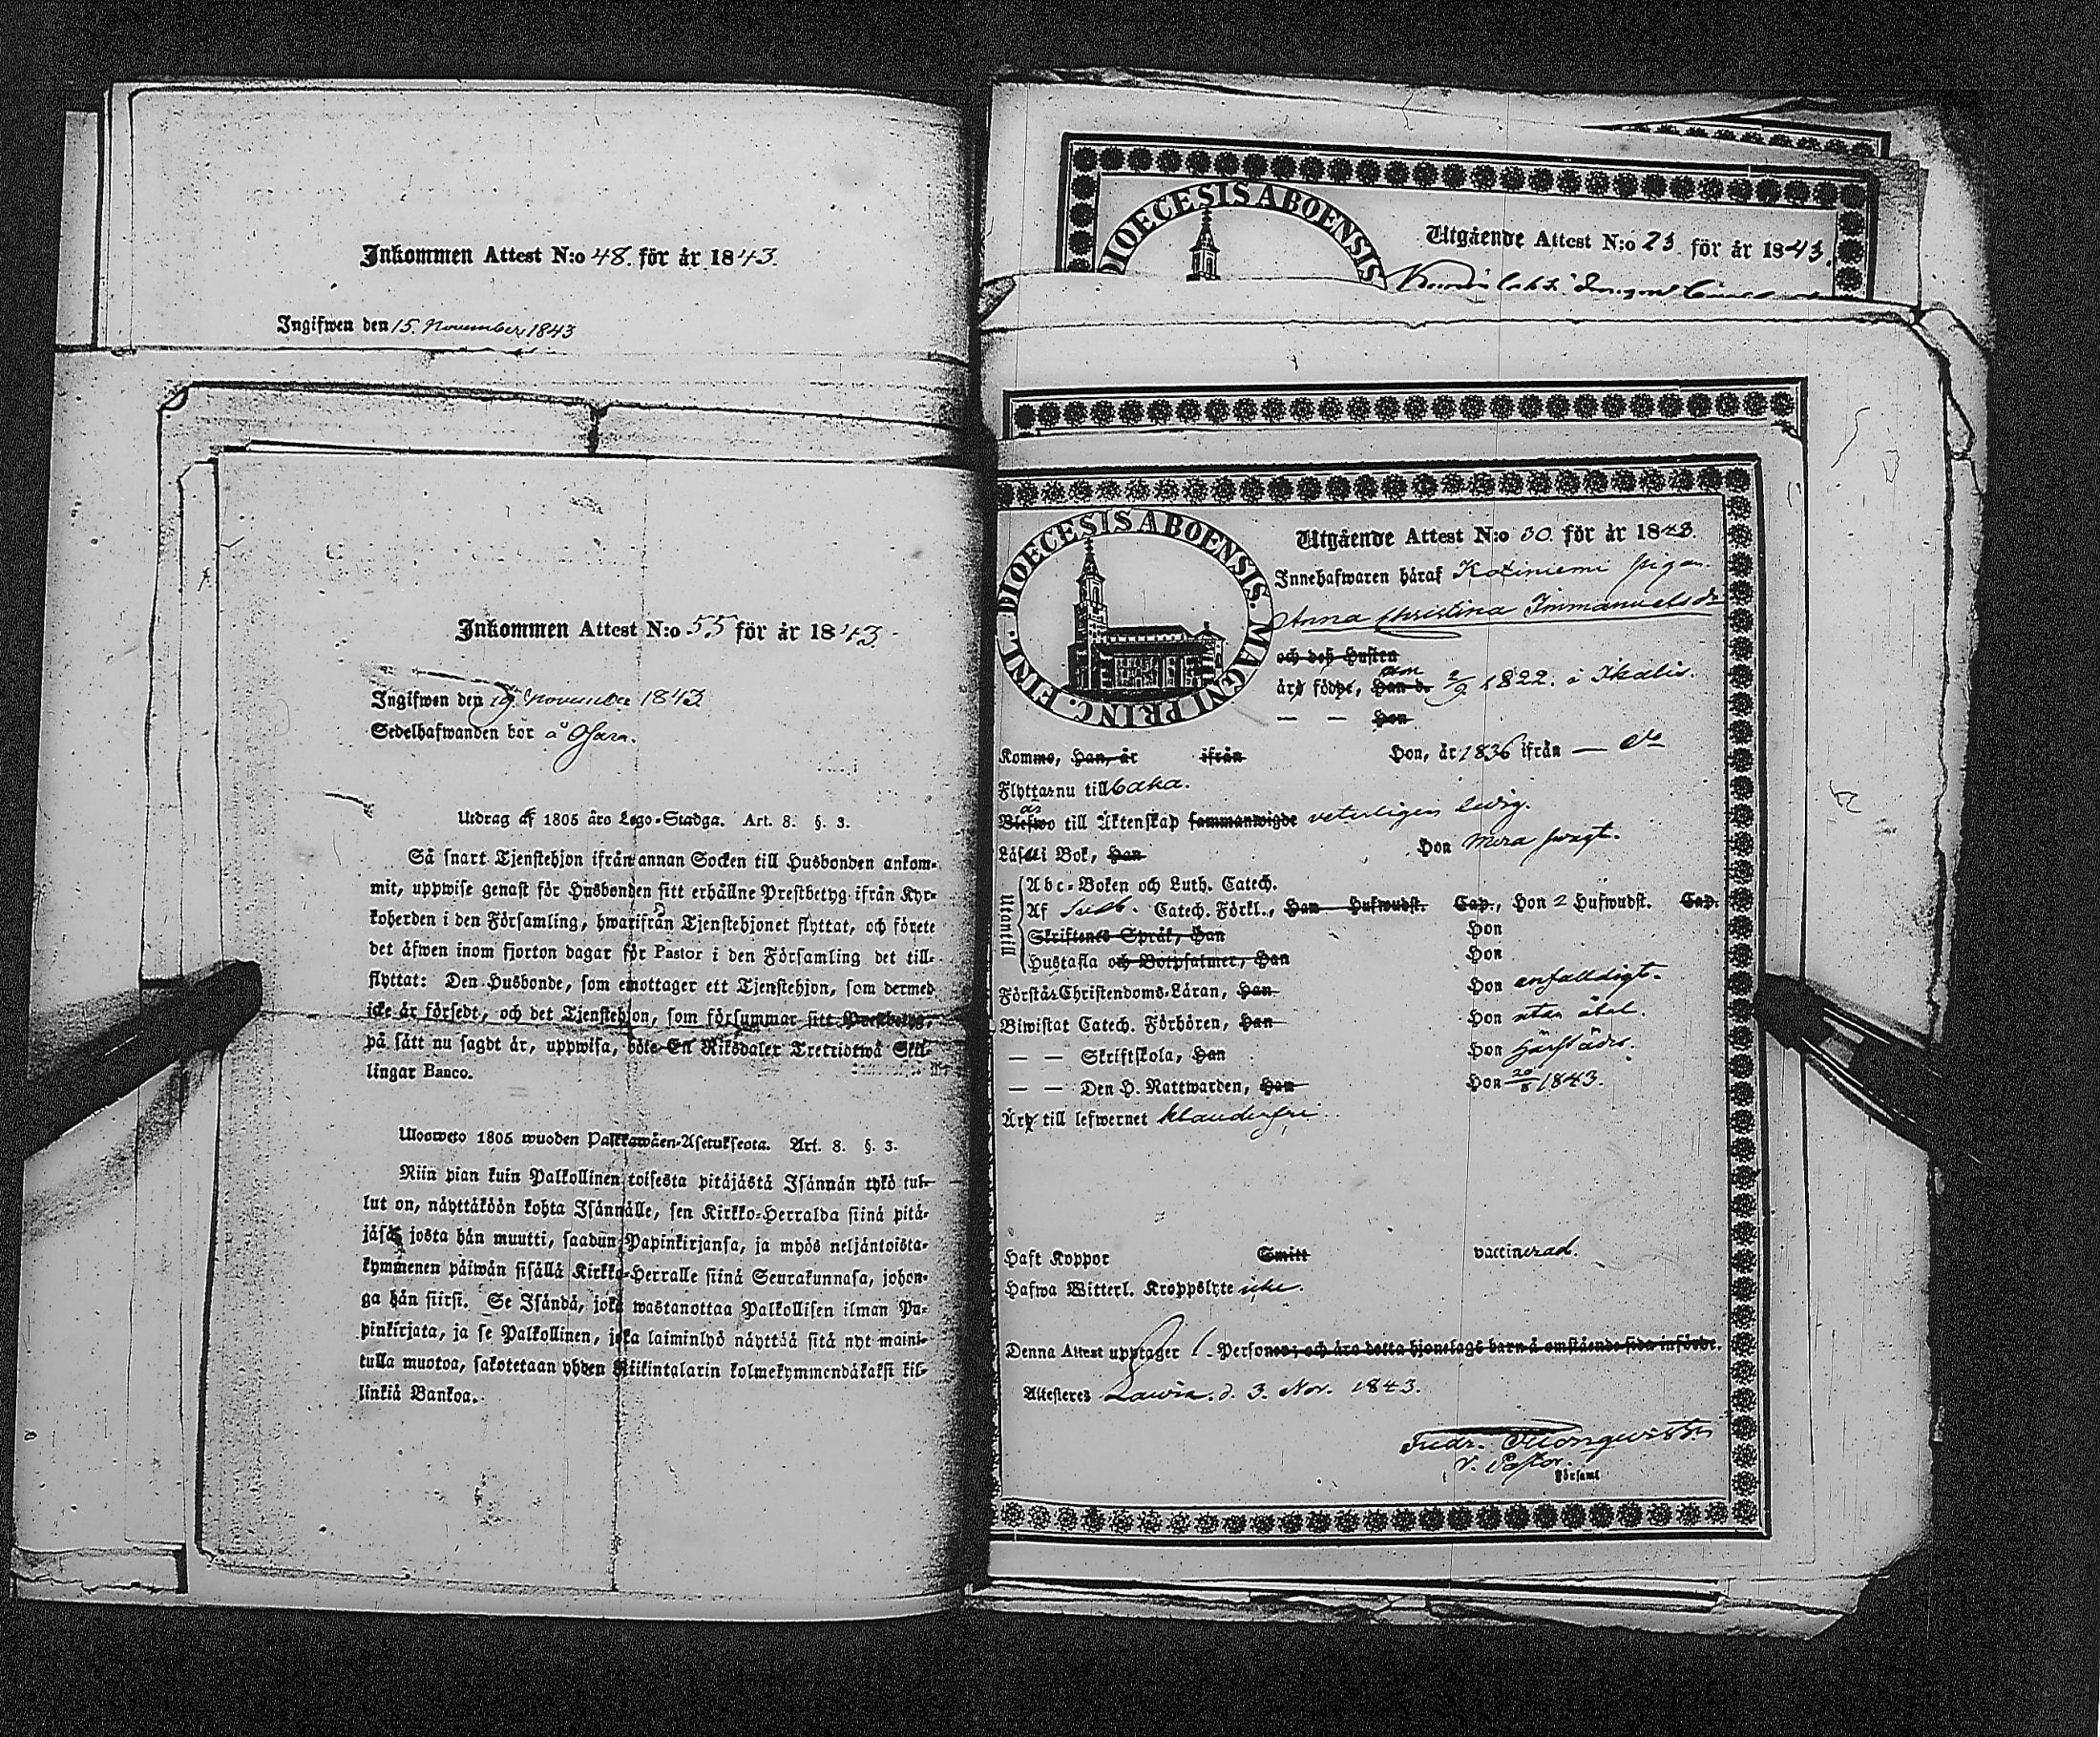 Inkommen Attest N:o 48. för år 1843.
Ingifwen den 15. November 1843
Inkommen Attest N:o 55 för år 1843.
Ingifwen den 19. November 1843
Sedelhafwanden bor å Osara.
Utdrag af 1805 års Lego-Stadga. Art. 8. §. 3.
Så snart Tjenstehjon ifrån annan Socken till Husbonden ankom-
mit, uppwise genast för Husbonden sitt erhållne Prestbetyg ifrån Kyr-
koherden i den Församling, hwarifrån Tjenstehjonet flyttat, och förete
det äfwen inom fjorton dagar för Pastor i den Församling det till-
flyttat: Den Husbonde, som emottager ett Tjenstehjon, som dermed
icke är försedt, och det Tjenstehjon, som försummar sitt Prestbetyg,
på sätt nu sagdt är, uppwisa, böte En Riksdaler Trettiotwå Skil-
lingar Banco.
Ulosweto 1805 wuoden Palkkawäen-Asetuksesta. Art. 8. §. 3.
Niin pian kuin Palkollinen toisesta pitäjästä Isännän tykö tul-
lut on, näyttäköön kohta Isännälle, sen Kirkko-Herralda siinä pitä-
jäsä, josta hän muutti, saadun Papinkirjansa, ja myös neljäntoista-
kymmenen päiwän sisällä Kirkko-Herralle siinä Seurakunnasa, johon-
ga hän siirsi. Se Isändä, joka wastanottaa Palkollisen ilman Pa-
pinkirjata, ja se Palkollinen, joka laiminlyö näyttää sitä nyt maini-
tulla muotoa, sakotetaan yhden Riikintalarin kolmekymmendäkaksi kil-
linkiä Bankoa.
DIOECESIS ABOENSIS
Utgående Attest N:o 23 för år 1843.
DIOECESIS ABOENSIS. MAGNI PRINC. FINL.
Utgående Attest N:o 30. för år 1843.
Innehafwaren häraf Kotiniemi pigan
Anna Christina Immanuelsdr
och deß Hustru
äro födde, Han d. den 2/9 1822. i Ikalis.
— — Hon
Komme, Han, år ifrån Hon, år 1836 ifrån — do
Flyttar nu till baka.
Blefwo är till Äktenskap sammanwigde veterligen ledig.
Läser i Bok, Han Hon mera swagt.
Utantill
Abc-Boken och Luth. Catech.
Af Svib. Catech. Förkl., Han Hufwudst. Cap., Hon 2 Hufwudst. Cap.
Skriftenes Språk, Han Hon
Hustafla och Botpsalmer, Han Hon
Förstår Christendoms-Läran, Han Hon enfalldigt.
Biwistat Catech. Förhören, Han Hon utan åtal.
— — Skriftskola, Han Hon härstädes.
— — Den H. Nattwarden, Han Hon 20/8 1843.
Äro till lefwernet klanderfri.
Haft Koppor Smitt vaccinerad.
Hafwa Witterl. Kroppslyte icke.
Denna Attest upptager 1 Personer; och äro detta hjonelags barn å omstående sida införde.
Attesteres Lawia. d. 3. Nov. 1843.
V. Pastor.
i Församl